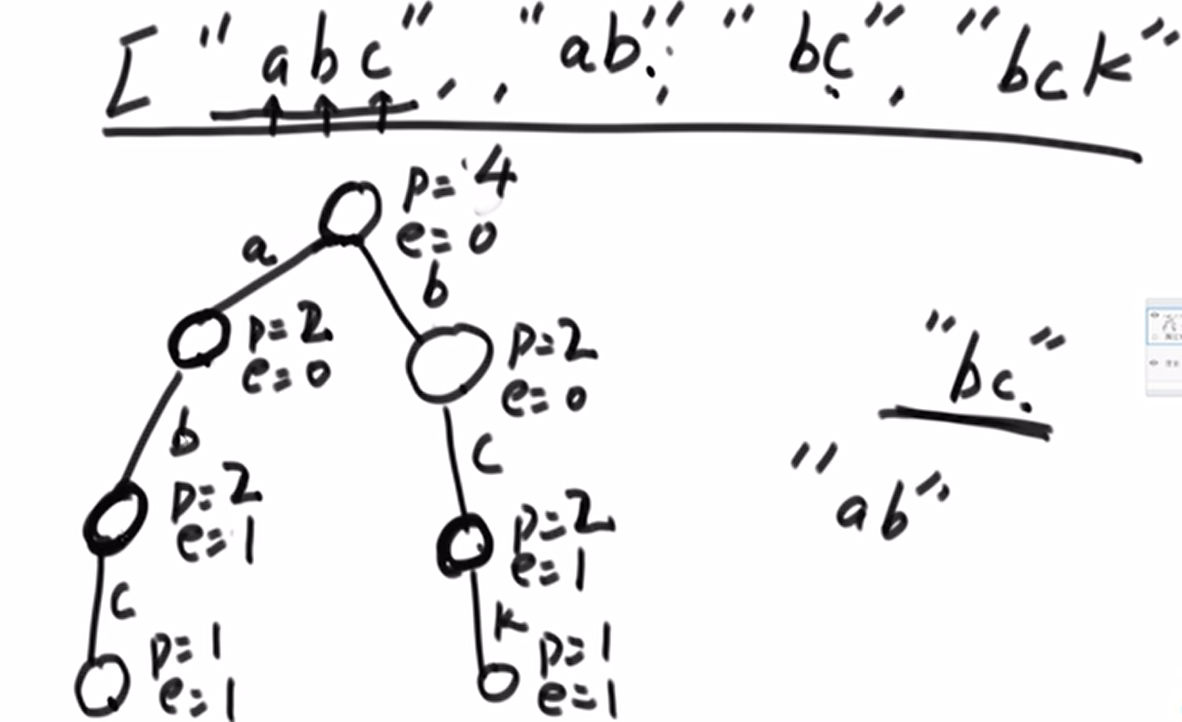 ["abc", "ab", "bc", "bck"
p=4
e=0
a
b
p=2
e=0
p=2
e=0
"bc"
b
c
"ab"
p=2
e=1
p=2
e=1
c
k
p=1
e=1
p=1
e=1